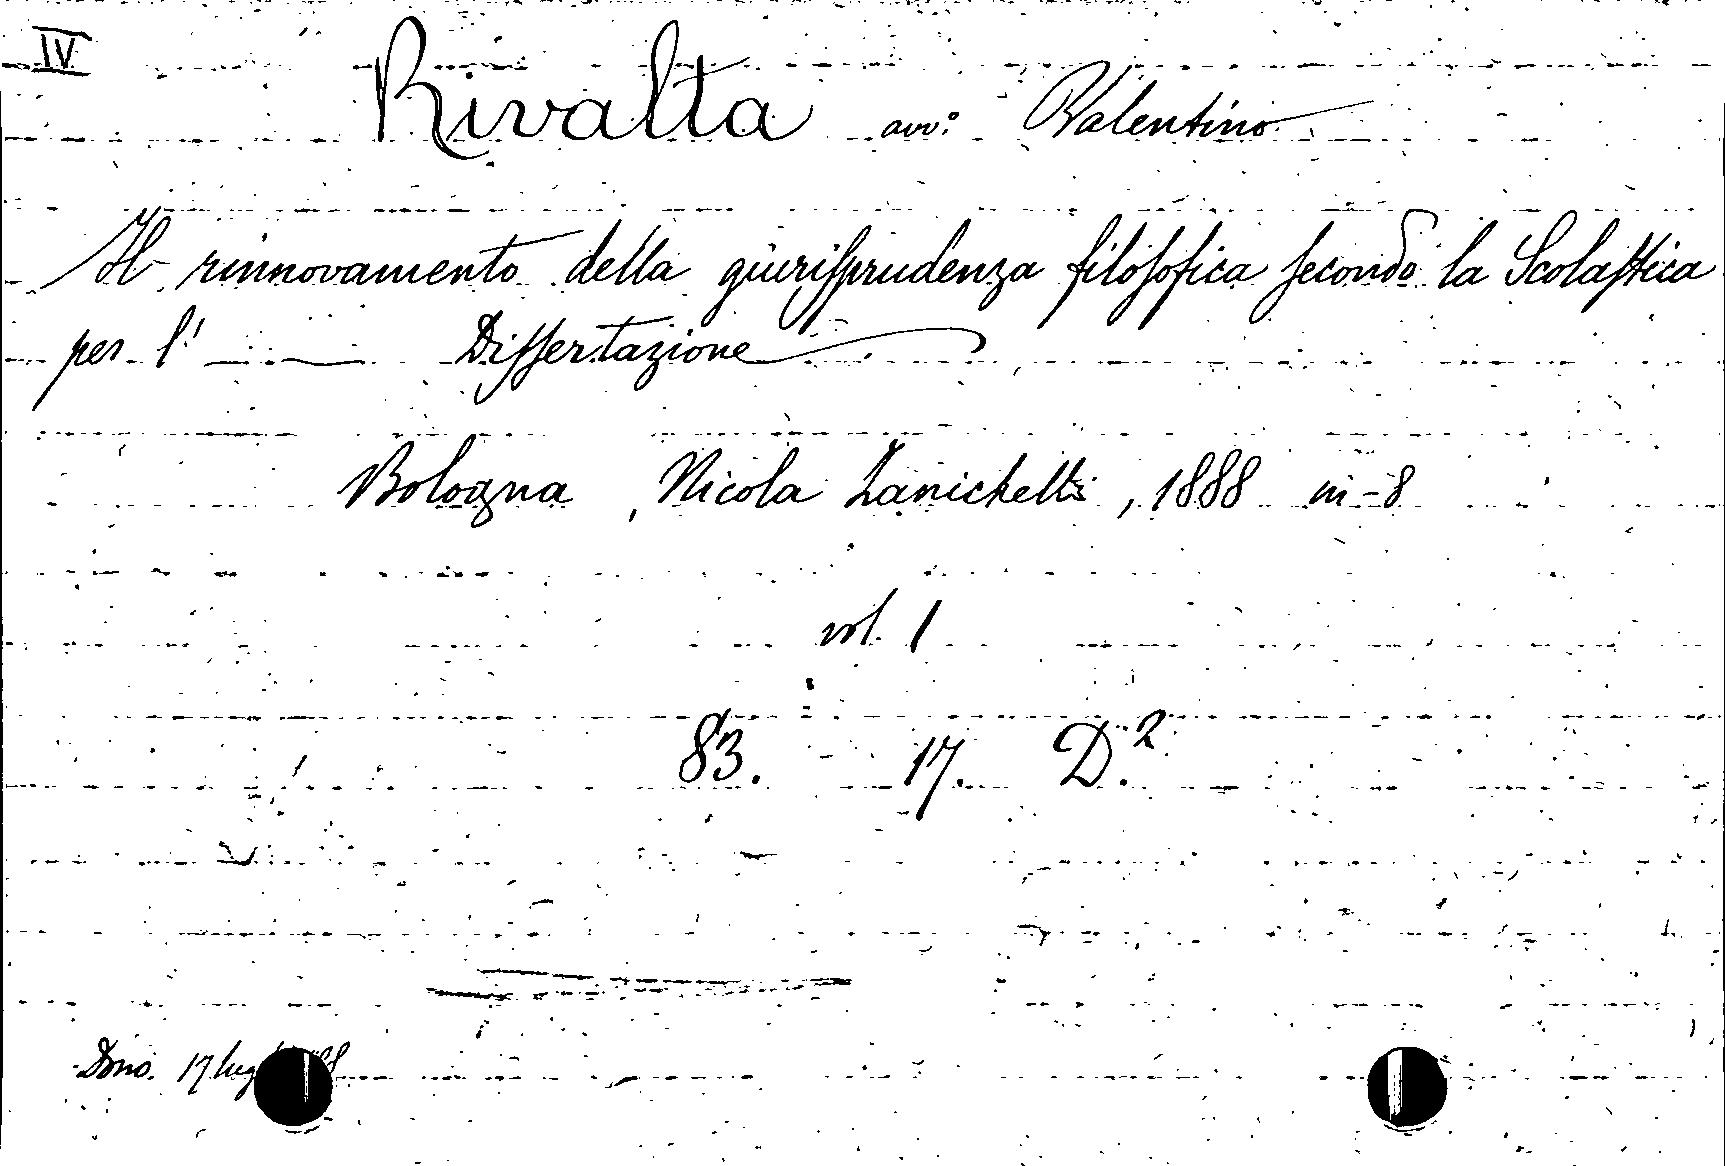 IV
Rivalta avv.º Valentino
Il rinnovamento della giurisprudenza filosofica secondo la Scolastica
per l' Dissertazione
Bologna, Nicola Zanichelli, 1888 in-8
vol. 1
83. 17. D.²
Dono. 17 88